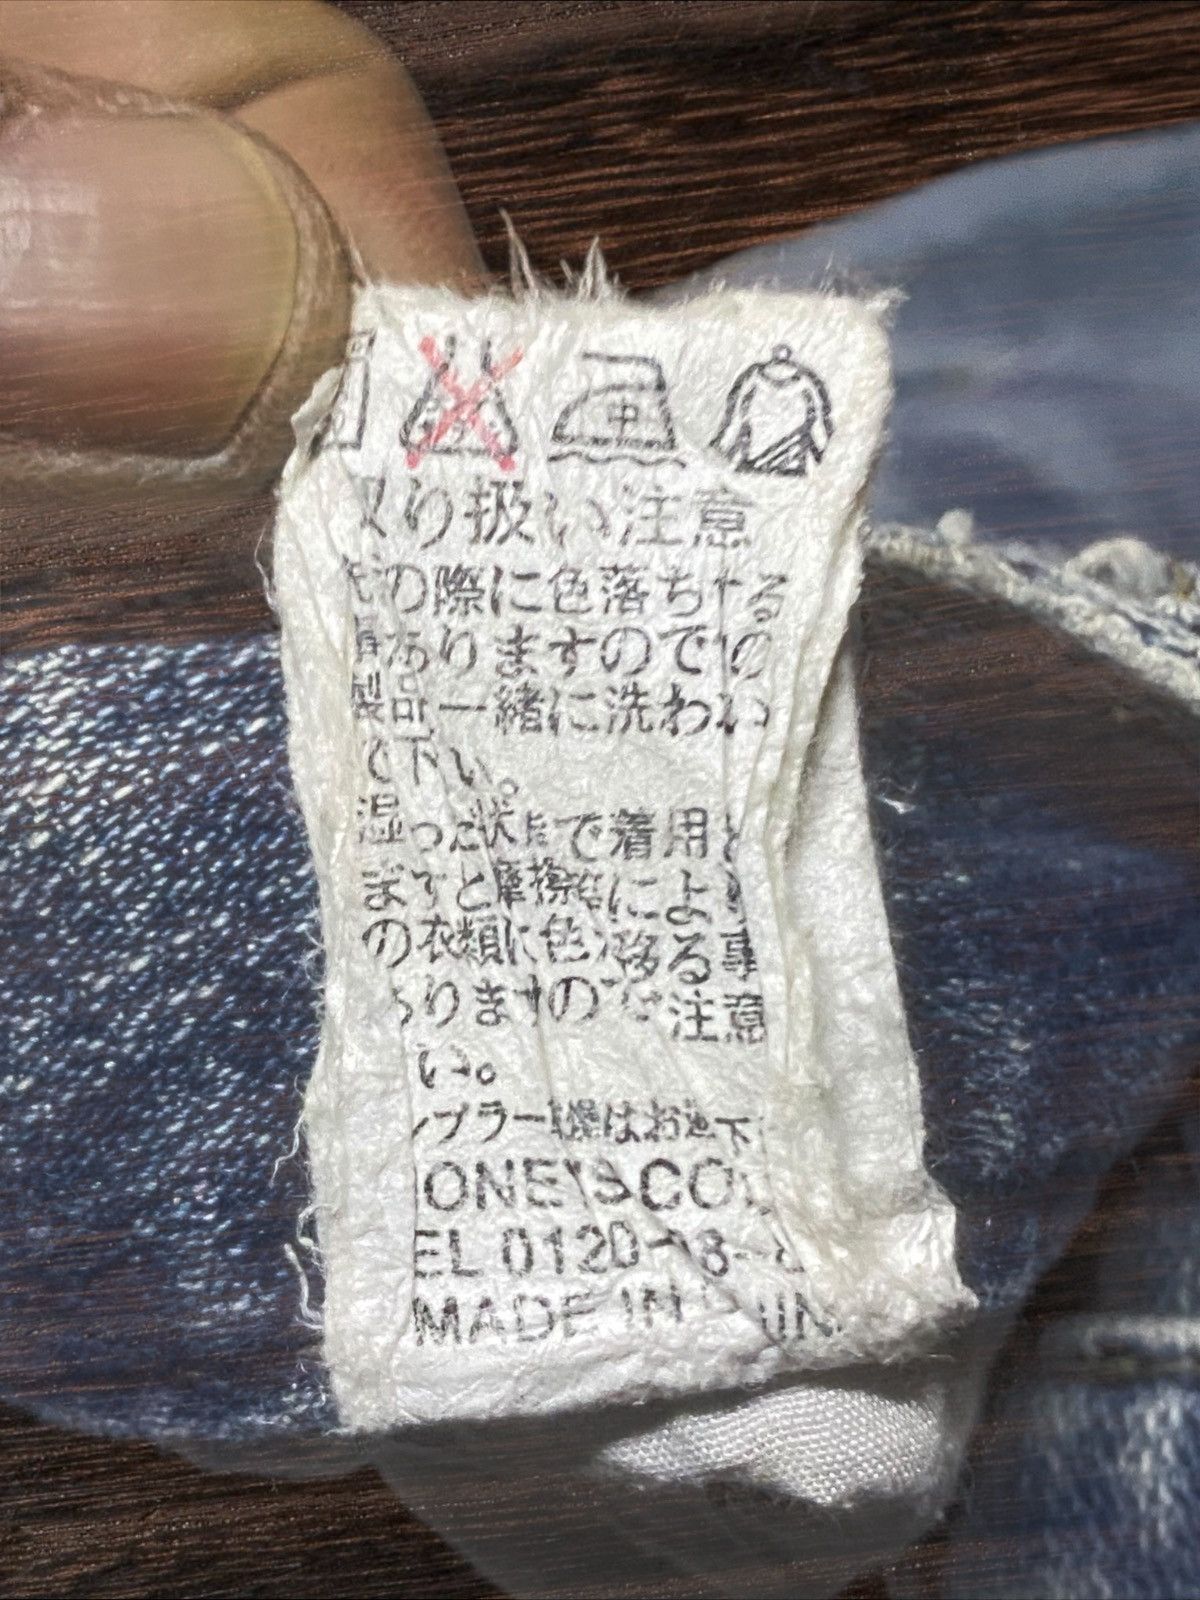 取り扱い注意
の際に色落ちする
ありますので の
製品一緒に洗わい
で下い。
湿った状態で着用し
ますと摩擦等によ
の衣類に色が移る事
ありますのでご注意
い。
ンブラー乾燥はお避下
ONE'S CO
EL 0120- 8-
MADE IN